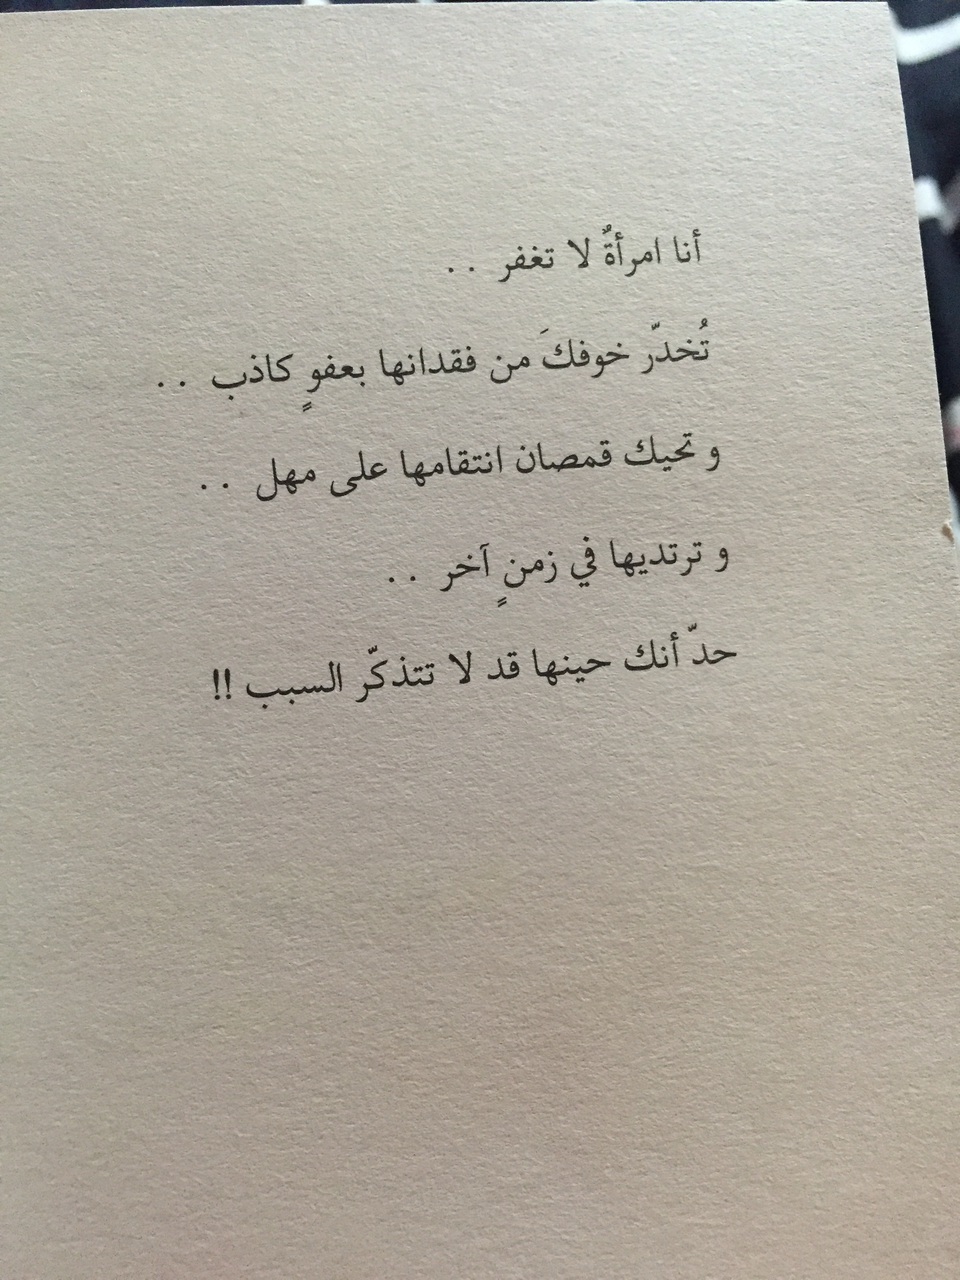 أنا امرأةٌ لا تغفر ..
تُخدّر خوفكَ من فقدانها بعفوٍ كاذب ..
و تحيك قمصان انتقامها على مهل ..
و ترتديها في زمنٍ آخر ..
حدّ أنك حينها قد لا تتذكّر السبب !!